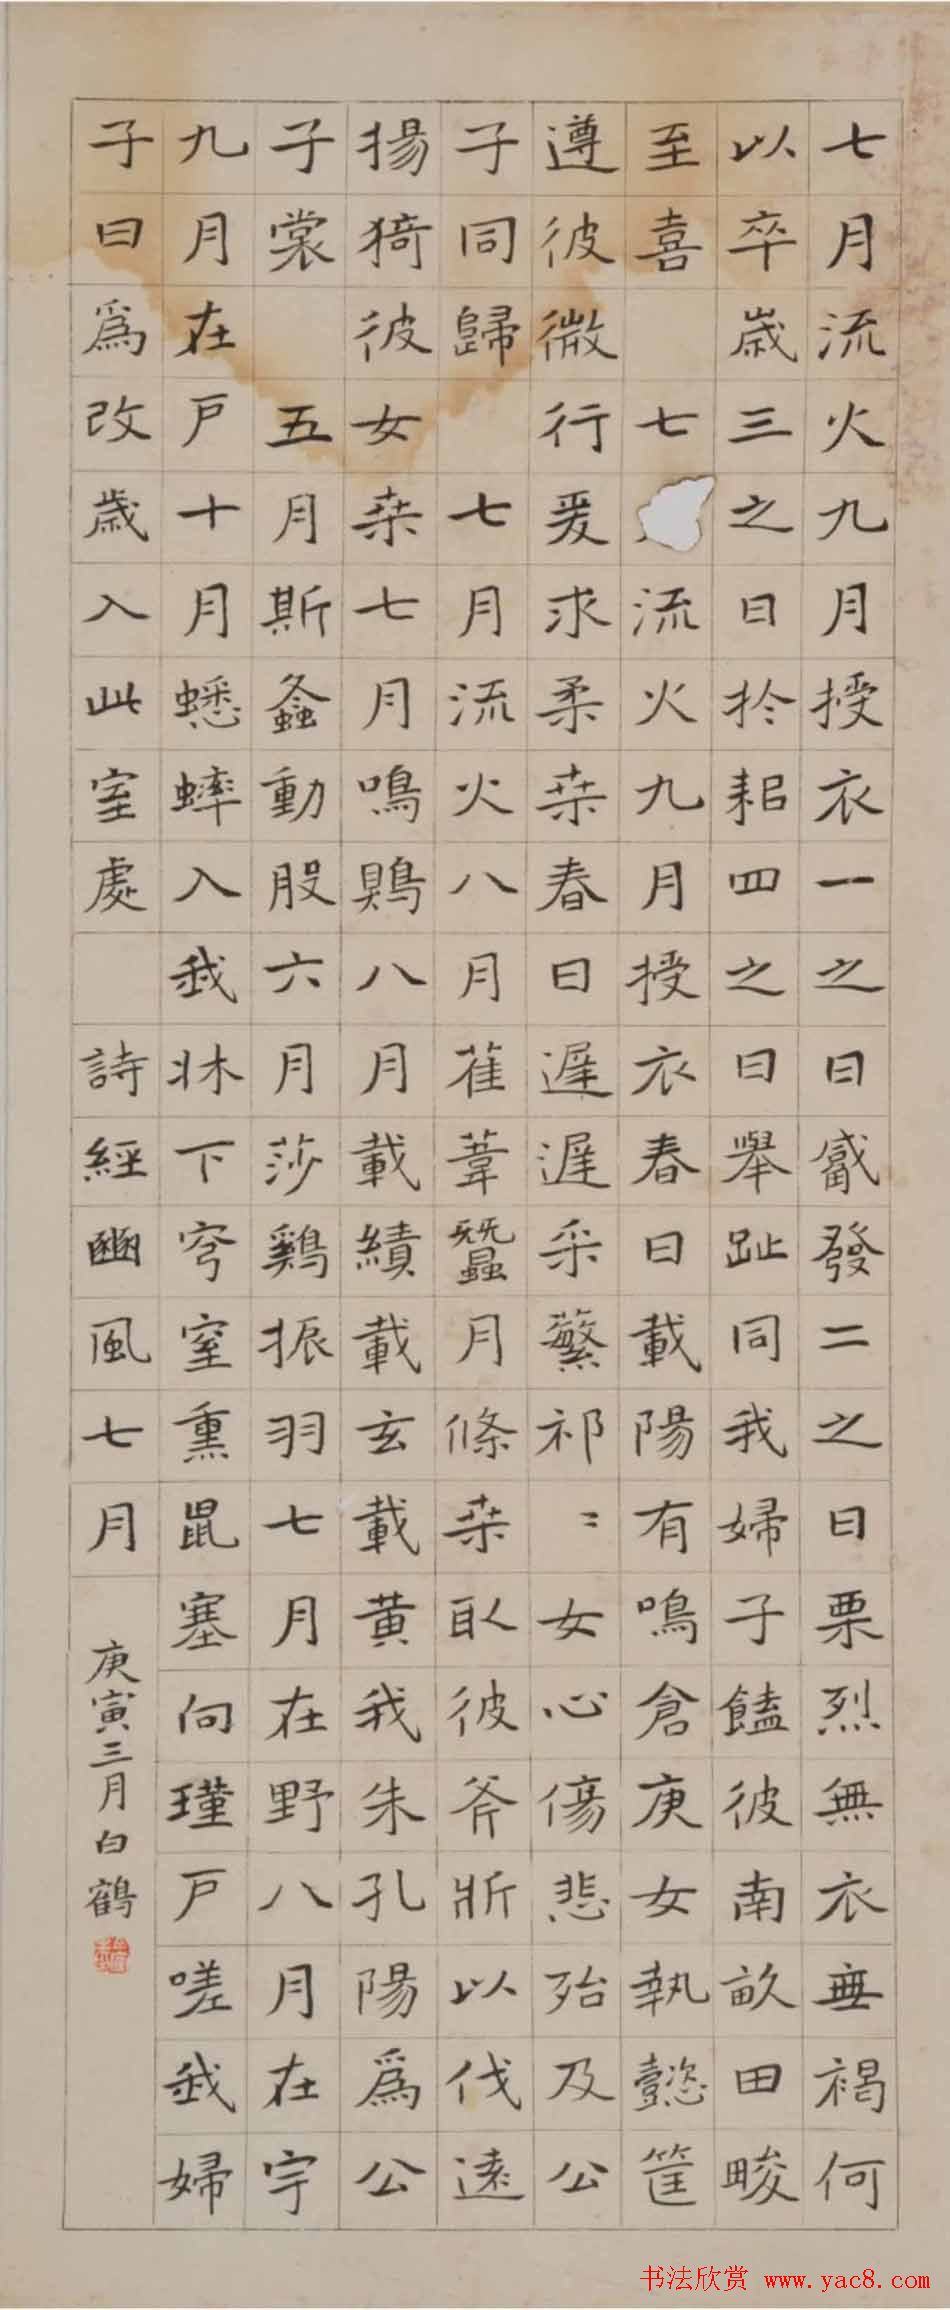 七月流火九月授衣一之日觱發二之日栗烈無衣無褐何
以卒歲三之日於耜四之日舉趾同我婦子饁彼南畝田畯
至喜 七流火九月授衣春日載陽有鳴倉庚女執懿筐
遵彼微行爰求柔桑春日遲遲采蘩祁〻女心傷悲殆及公
子同歸 七月流火八月萑葦蠶月條桑取彼斧斨以伐遠
揚猗彼女桑七月鳴鵙八月載績載玄載黃我朱孔陽爲公
子裳 五月斯螽動股六月莎鷄振羽七月在野八月在宇
九月在戶十月蟋蟀入我牀下穹窒熏鼠塞向墐戶嗟我婦
子曰爲改歲入此室處 詩經豳風七月
庚寅三月白鶴
书法欣赏 www.yac8.com